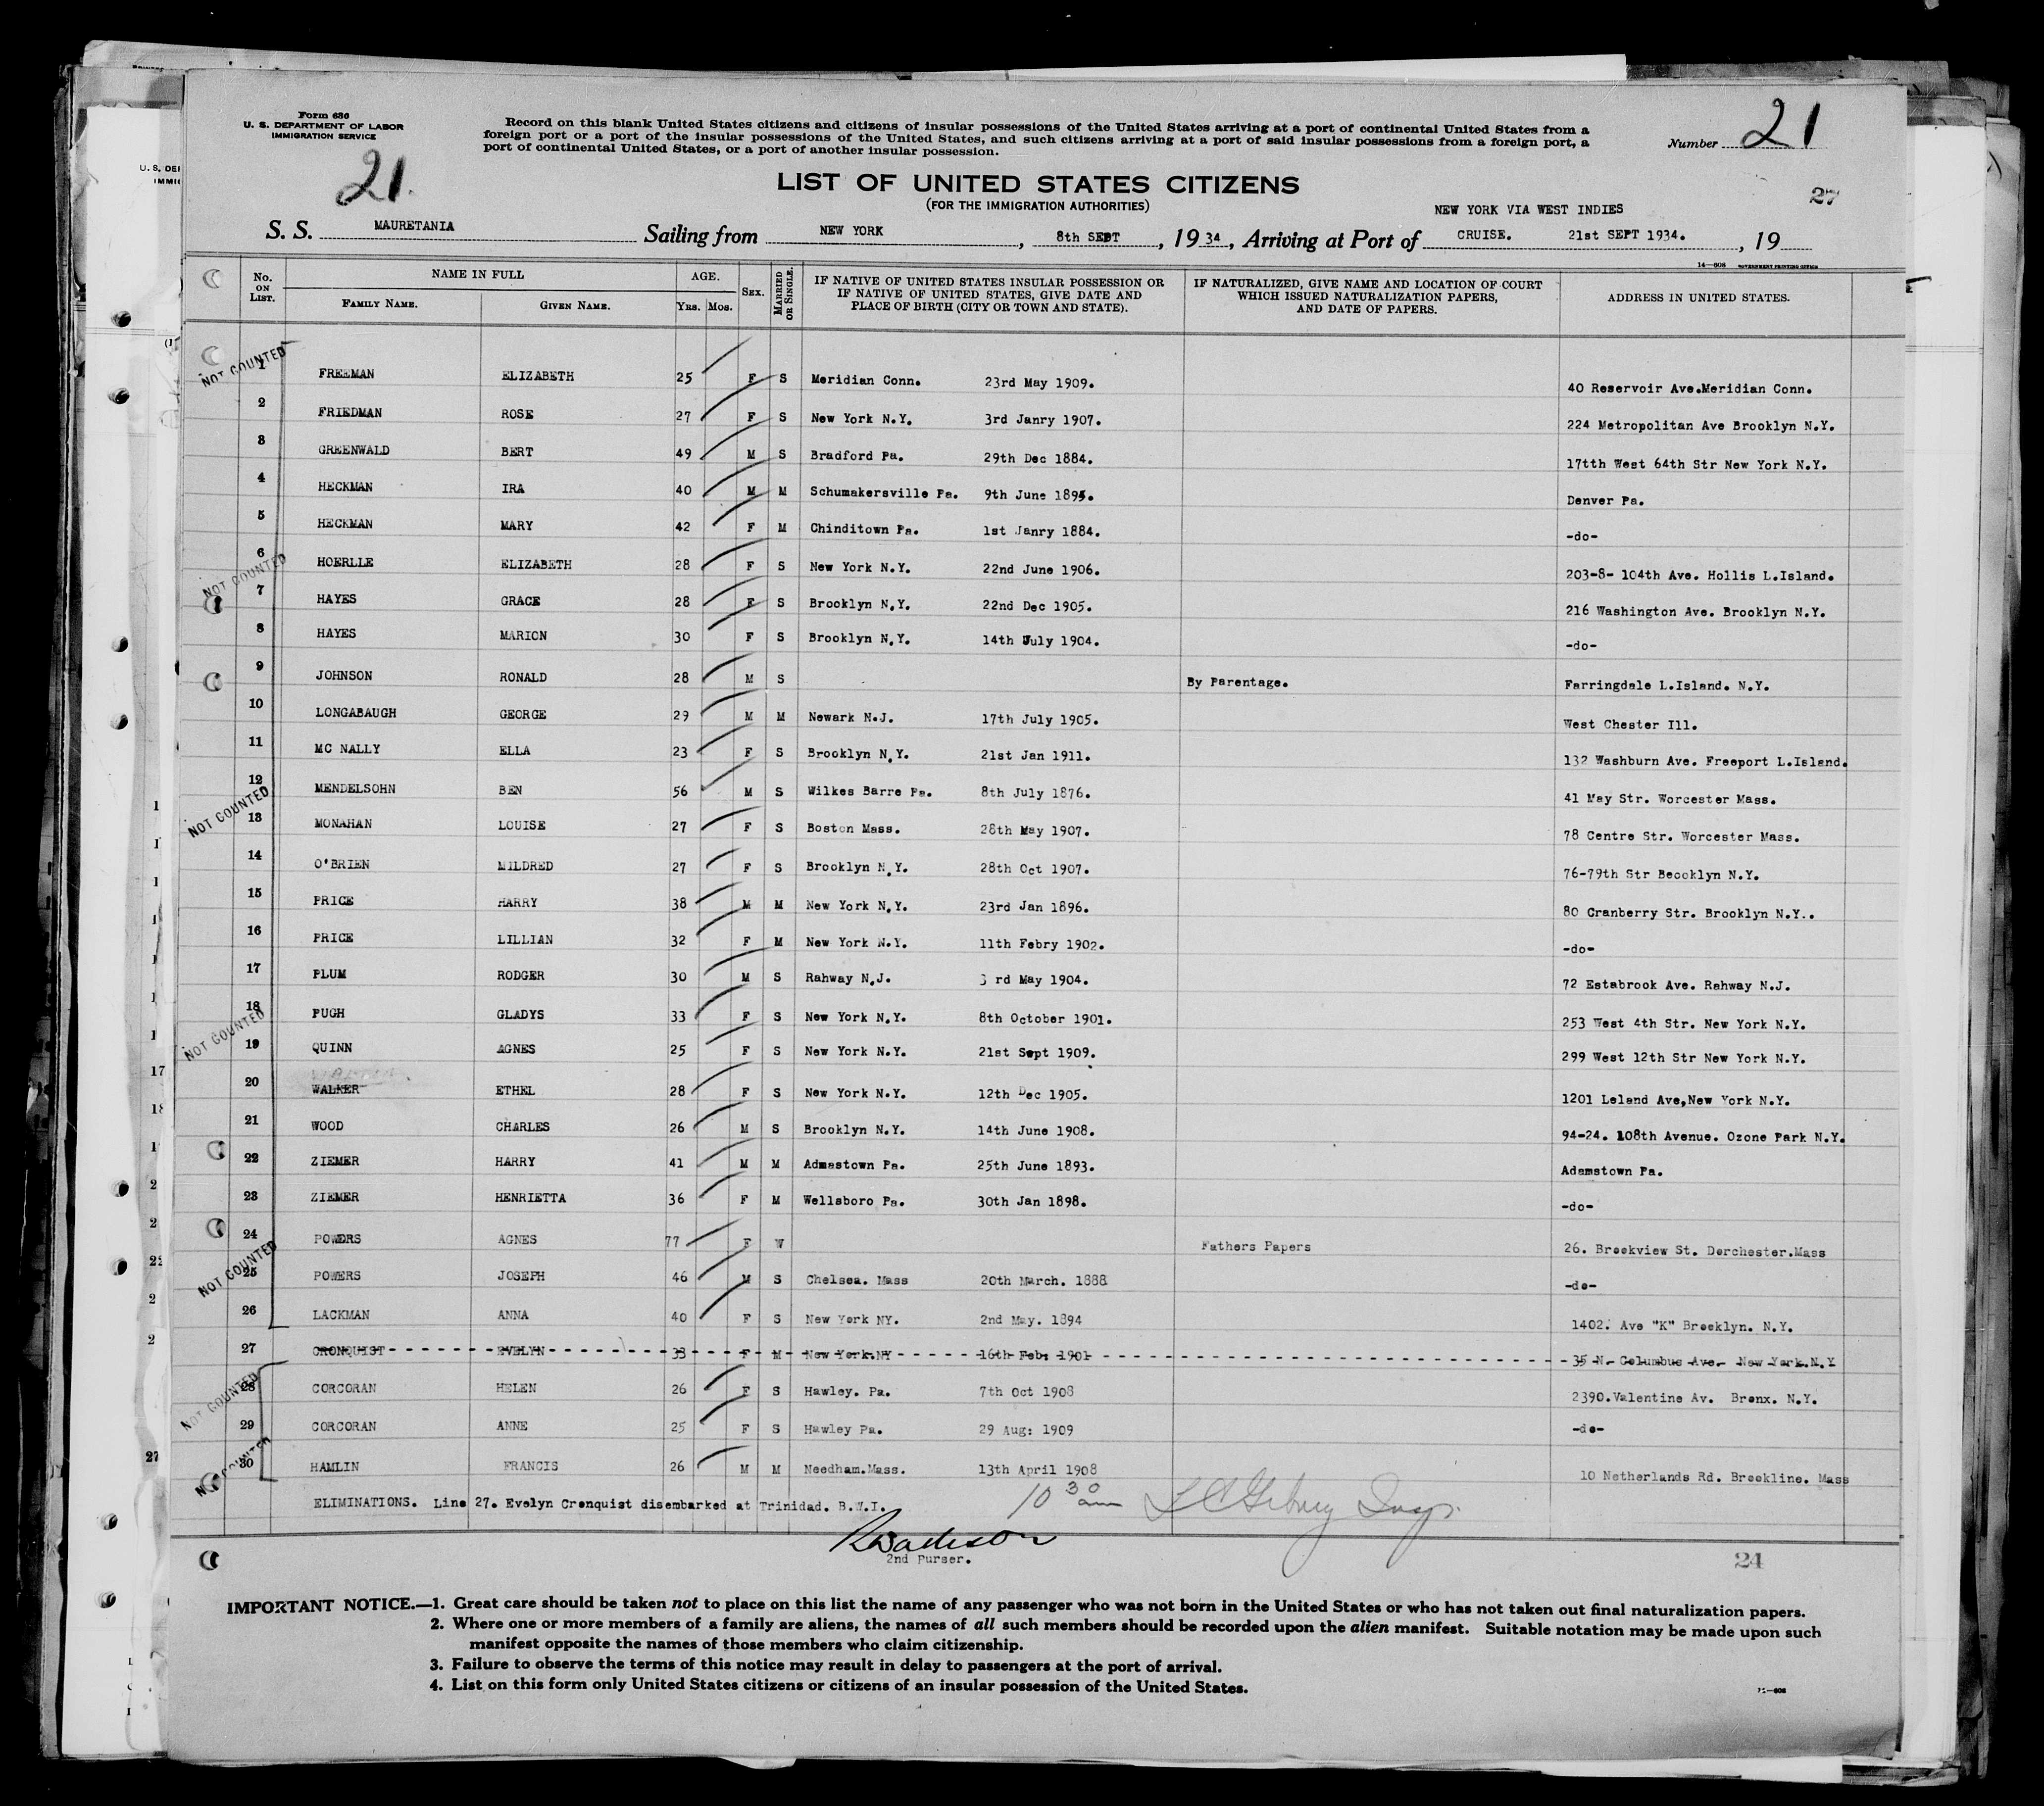 Form 630
U. S. DEPARTMENT OF LABOR
IMMIGRATION SERVICE
21.
Record on this blank United States citizens and citizens of insular possessions of the United States arriving at a port of continental United States from a
foreign port or a port of the insular possessions of the United States, and such citizens arriving at a port of said insular possessions from a foreign port, a
port of continental United States, or a port of another insular possession.
Number 21
27
LIST OF UNITED STATES CITIZENS
(FOR THE IMMIGRATION AUTHORITIES)
NEW YORK VIA WEST INDIES
S. S. MAURETANIA Sailing from NEW YORK, 8th SEPT, 1934, Arriving at Port of CRUISE. 21st SEPT 1934., 19
14—608 GOVERNMENT PRINTING OFFICE
No. ON LIST. NAME IN FULL FAMILY NAME. GIVEN NAME. AGE. YRS. MOS. SEX. MARRIED OR SINGLE. IF NATIVE OF UNITED STATES INSULAR POSSESSION OR IF NATIVE OF UNITED STATES, GIVE DATE AND PLACE OF BIRTH (CITY OR TOWN AND STATE). IF NATURALIZED, GIVE NAME AND LOCATION OF COURT WHICH ISSUED NATURALIZATION PAPERS, AND DATE OF PAPERS. ADDRESS IN UNITED STATES.
NOT COUNTED
1 FREEMAN ELIZABETH 25 F S Meridian Conn. 23rd May 1909. 40 Reservoir Ave.Meridian Conn.
2 FRIEDMAN ROSE 27 F S New York N.Y. 3rd Janry 1907. 224 Metropolitan Ave Brooklyn N.Y.
3 GREENWALD BERT 49 M S Bradford Pa. 29th Dec 1884. 17tth West 64th Str New York N.Y.
4 HECKMAN IRA 40 M M Schumakersville Pa. 9th June 1895. Denver Pa.
5 HECKMAN MARY 42 F M Chinditown Pa. 1st Janry 1884. -do-
6 HOERLLE ELIZABETH 28 F S New York N.Y. 22nd June 1906. 203-8- 104th Ave. Hollis L.Island.
NOT COUNTED
7 HAYES GRACE 28 F S Brooklyn N.Y. 22nd Dec 1905. 216 Washington Ave. Brooklyn N.Y.
8 HAYES MARION 30 F S Brooklyn N.Y. 14th July 1904. -do-
9 JOHNSON RONALD 28 M S By Parentage. Farringdale L.Island. N.Y.
10 LONGABAUGH GEORGE 29 M M Newark N.J. 17th July 1905. West Chester Ill.
11 MC NALLY ELLA 23 F S Brooklyn N.Y. 21st Jan 1911. 132 Washburn Ave. Freeport L.Island.
12 MENDELSOHN BEN 56 M S Wilkes Barre Pa. 8th July 1876. 41 May Str. Worcester Mass.
NOT COUNTED
13 MONAHAN LOUISE 27 F S Boston Mass. 28th May 1907. 78 Centre Str. Worcester Mass.
14 O'BRIEN MILDRED 27 F S Brooklyn N.Y. 28th Oct 1907. 76-79th Str Becoklyn N.Y.
15 PRICE HARRY 38 M M New York N.Y. 23rd Jan 1896. 80 Cranberry Str. Brooklyn N.Y..
16 PRICE LILLIAN 32 F M New York N.Y. 11th Febry 1902. -do-
17 PLUM RODGER 30 M S Rahway N.J. 3 rd May 1904. 72 Estabrook Ave. Rahway N.J.
18 PUGH GLADYS 33 F S New York N.Y. 8th October 1901. 253 West 4th Str. New York N.Y.
NOT COUNTED
19 QUINN AGNES 25 F S New York N.Y. 21st Sept 1909. 299 West 12th Str New York N.Y.
20 WALKER ETHEL 28 F S New York N.Y. 12th Dec 1905. 1201 Leland Ave,New York N.Y.
21 WOOD CHARLES 26 M S Brooklyn N.Y. 14th June 1908. 94-24. 108th Avenue. Ozone Park N.Y.
22 ZIEMER HARRY 41 M M Admastown Pa. 25th June 1893. Adamstown Pa.
23 ZIEMER HENRIETTA 36 F M Wellsboro Pa. 30th Jan 1898. -do-
24 POWERS AGNES 77 F W Fathers Papers 26. Brookview St. Dorchester.Mass
NOT COUNTED
25 POWERS JOSEPH 46 M S Chelsea. Mass 20th March. 1888 -do-
26 LACKMAN ANNA 40 F S New York NY. 2nd May. 1894 1402. Ave "K" Brooklyn. N.Y.
27 CRONQUIST EVELYN 33 F M New York.NY 16th Feb: 1901 35 N. Columbus Ave. New York.N.Y
28 CORCORAN HELEN 26 F S Hawley. Pa. 7th Oct 1908 2390.Valentine Av. Bronx. N.Y.
NOT COUNTED
29 CORCORAN ANNE 25 F S Hawley Pa. 29 Aug: 1909 -do-
30 HAMLIN FRANCIS 26 M M Needham.Mass. 13th April 1908 10 Netherlands Rd. Brookline. Mass
NOT COUNTED
ELIMINATIONS. Line 27. Evelyn Cronquist disembarked at Trinidad. B.W.I.
10 30 am
2nd Purser.
24
IMPORTANT NOTICE.—1. Great care should be taken not to place on this list the name of any passenger who was not born in the United States or who has not taken out final naturalization papers.
2. Where one or more members of a family are aliens, the names of all such members should be recorded upon the alien manifest. Suitable notation may be made upon such
manifest opposite the names of those members who claim citizenship.
3. Failure to observe the terms of this notice may result in delay to passengers at the port of arrival.
4. List on this form only United States citizens or citizens of an insular possession of the United States.